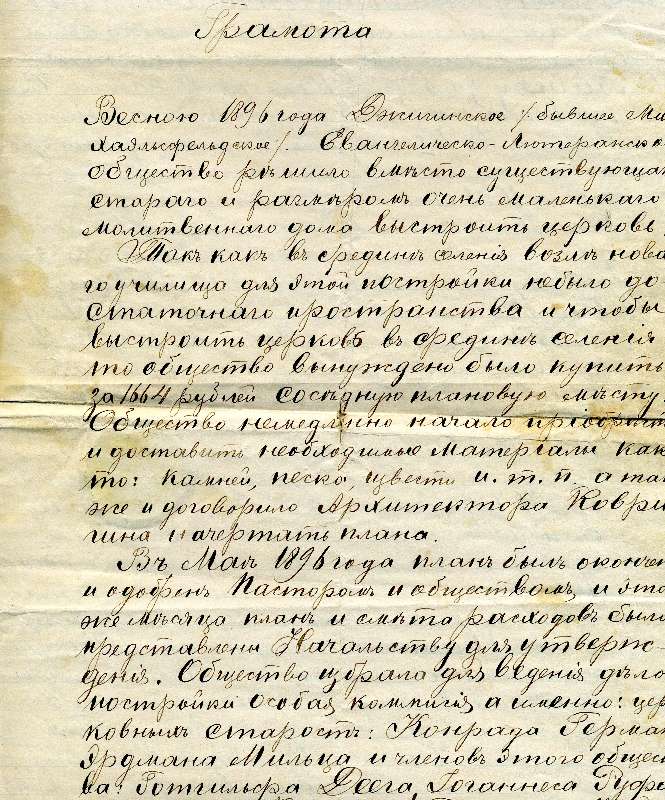 Грамота
Весною 1896 года Джигинское /. бывшее Ми
хаэльсфельдское /. Евангелическо-Лютеранско
общество рѣшило вмѣсто существующаг
стараго и размѣромъ очень маленькаго
молитвеннаго дома выстроить церковь.
Такъ какъ въ срединѣ селенія возлѣ нова
го училища для этой постройки небыло до
статочнаго пространства и чтобы
выстроить церковь въ срединѣ селенія
то общество вынуждено было купить
за 1664 рублей сосѣдную плановую мѣсту.
Общество немедленно начало пріобрѣт
и доставить необходимые материалы как
то: камней, песка, извести и. т. п. а так
же и договорило Архитектора Коври
гина начертать плана.
Въ Маѣ 1896 года планъ былъ окончен
и одобренъ Пасторомъ и обществомъ, и этог
же мѣсяца планъ и смѣта расходовъ были
представлены Начальству для утверж-
денія. Общество избрала для веденія дѣло
постройки особая коммисія а именно: цер
ковныхъ старостъ: Конрада Герман
Эрдмана Мильца и членовъ этого общес
ва: Готтильфа Деега, Іоганнеса Руфа